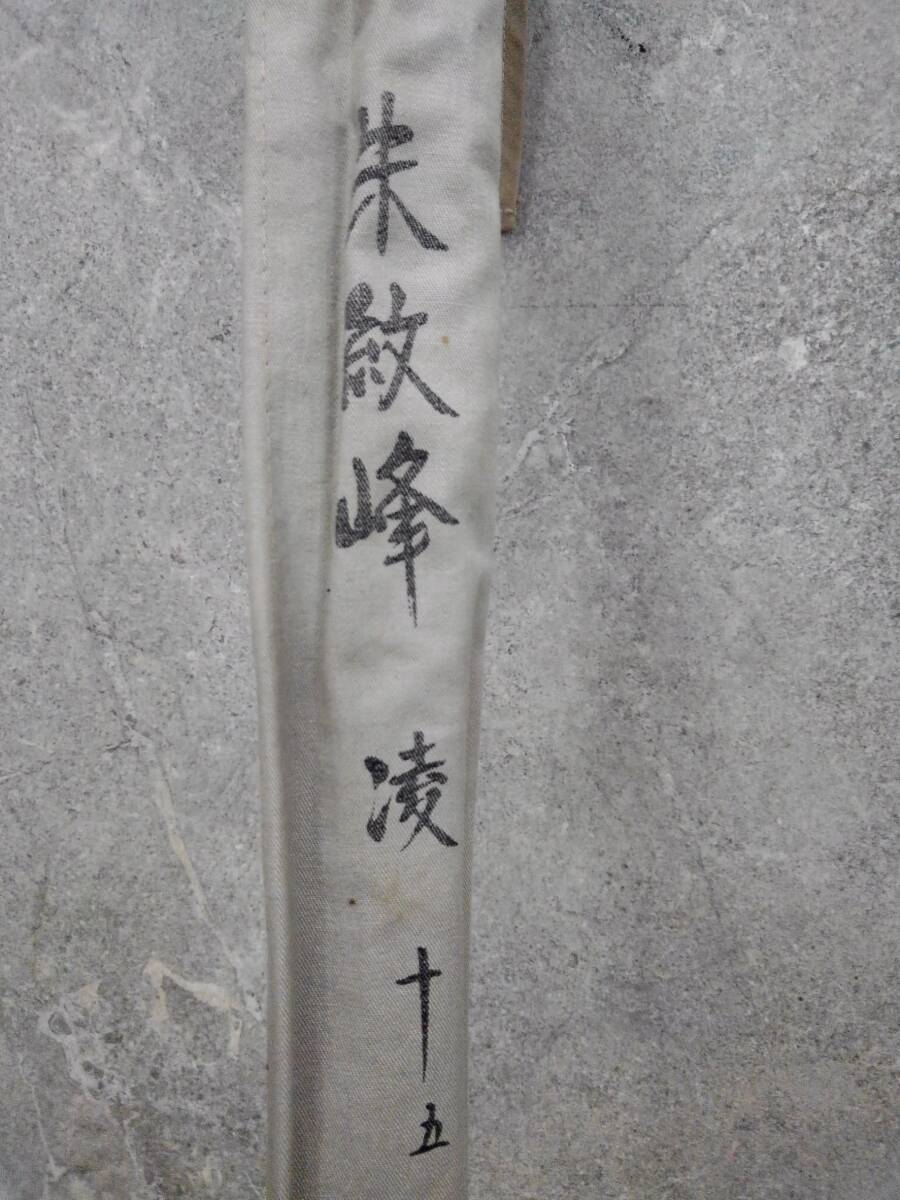 朱啟峰 凌 十五